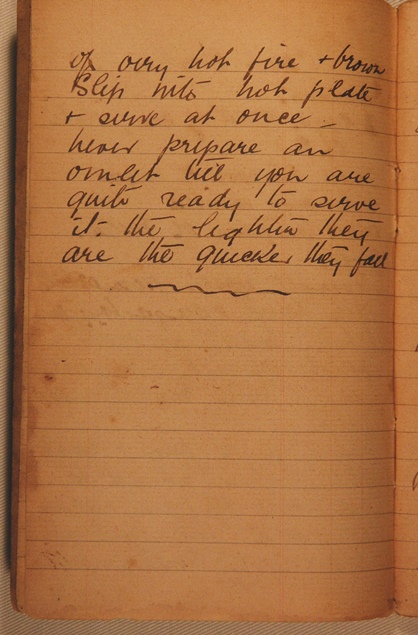 of very hot fire + brown
Slip into hot plate
+ serve at once -
never prepare an
omlet till you are
quite ready to serve
it. the lighter they
are the quicker they fall